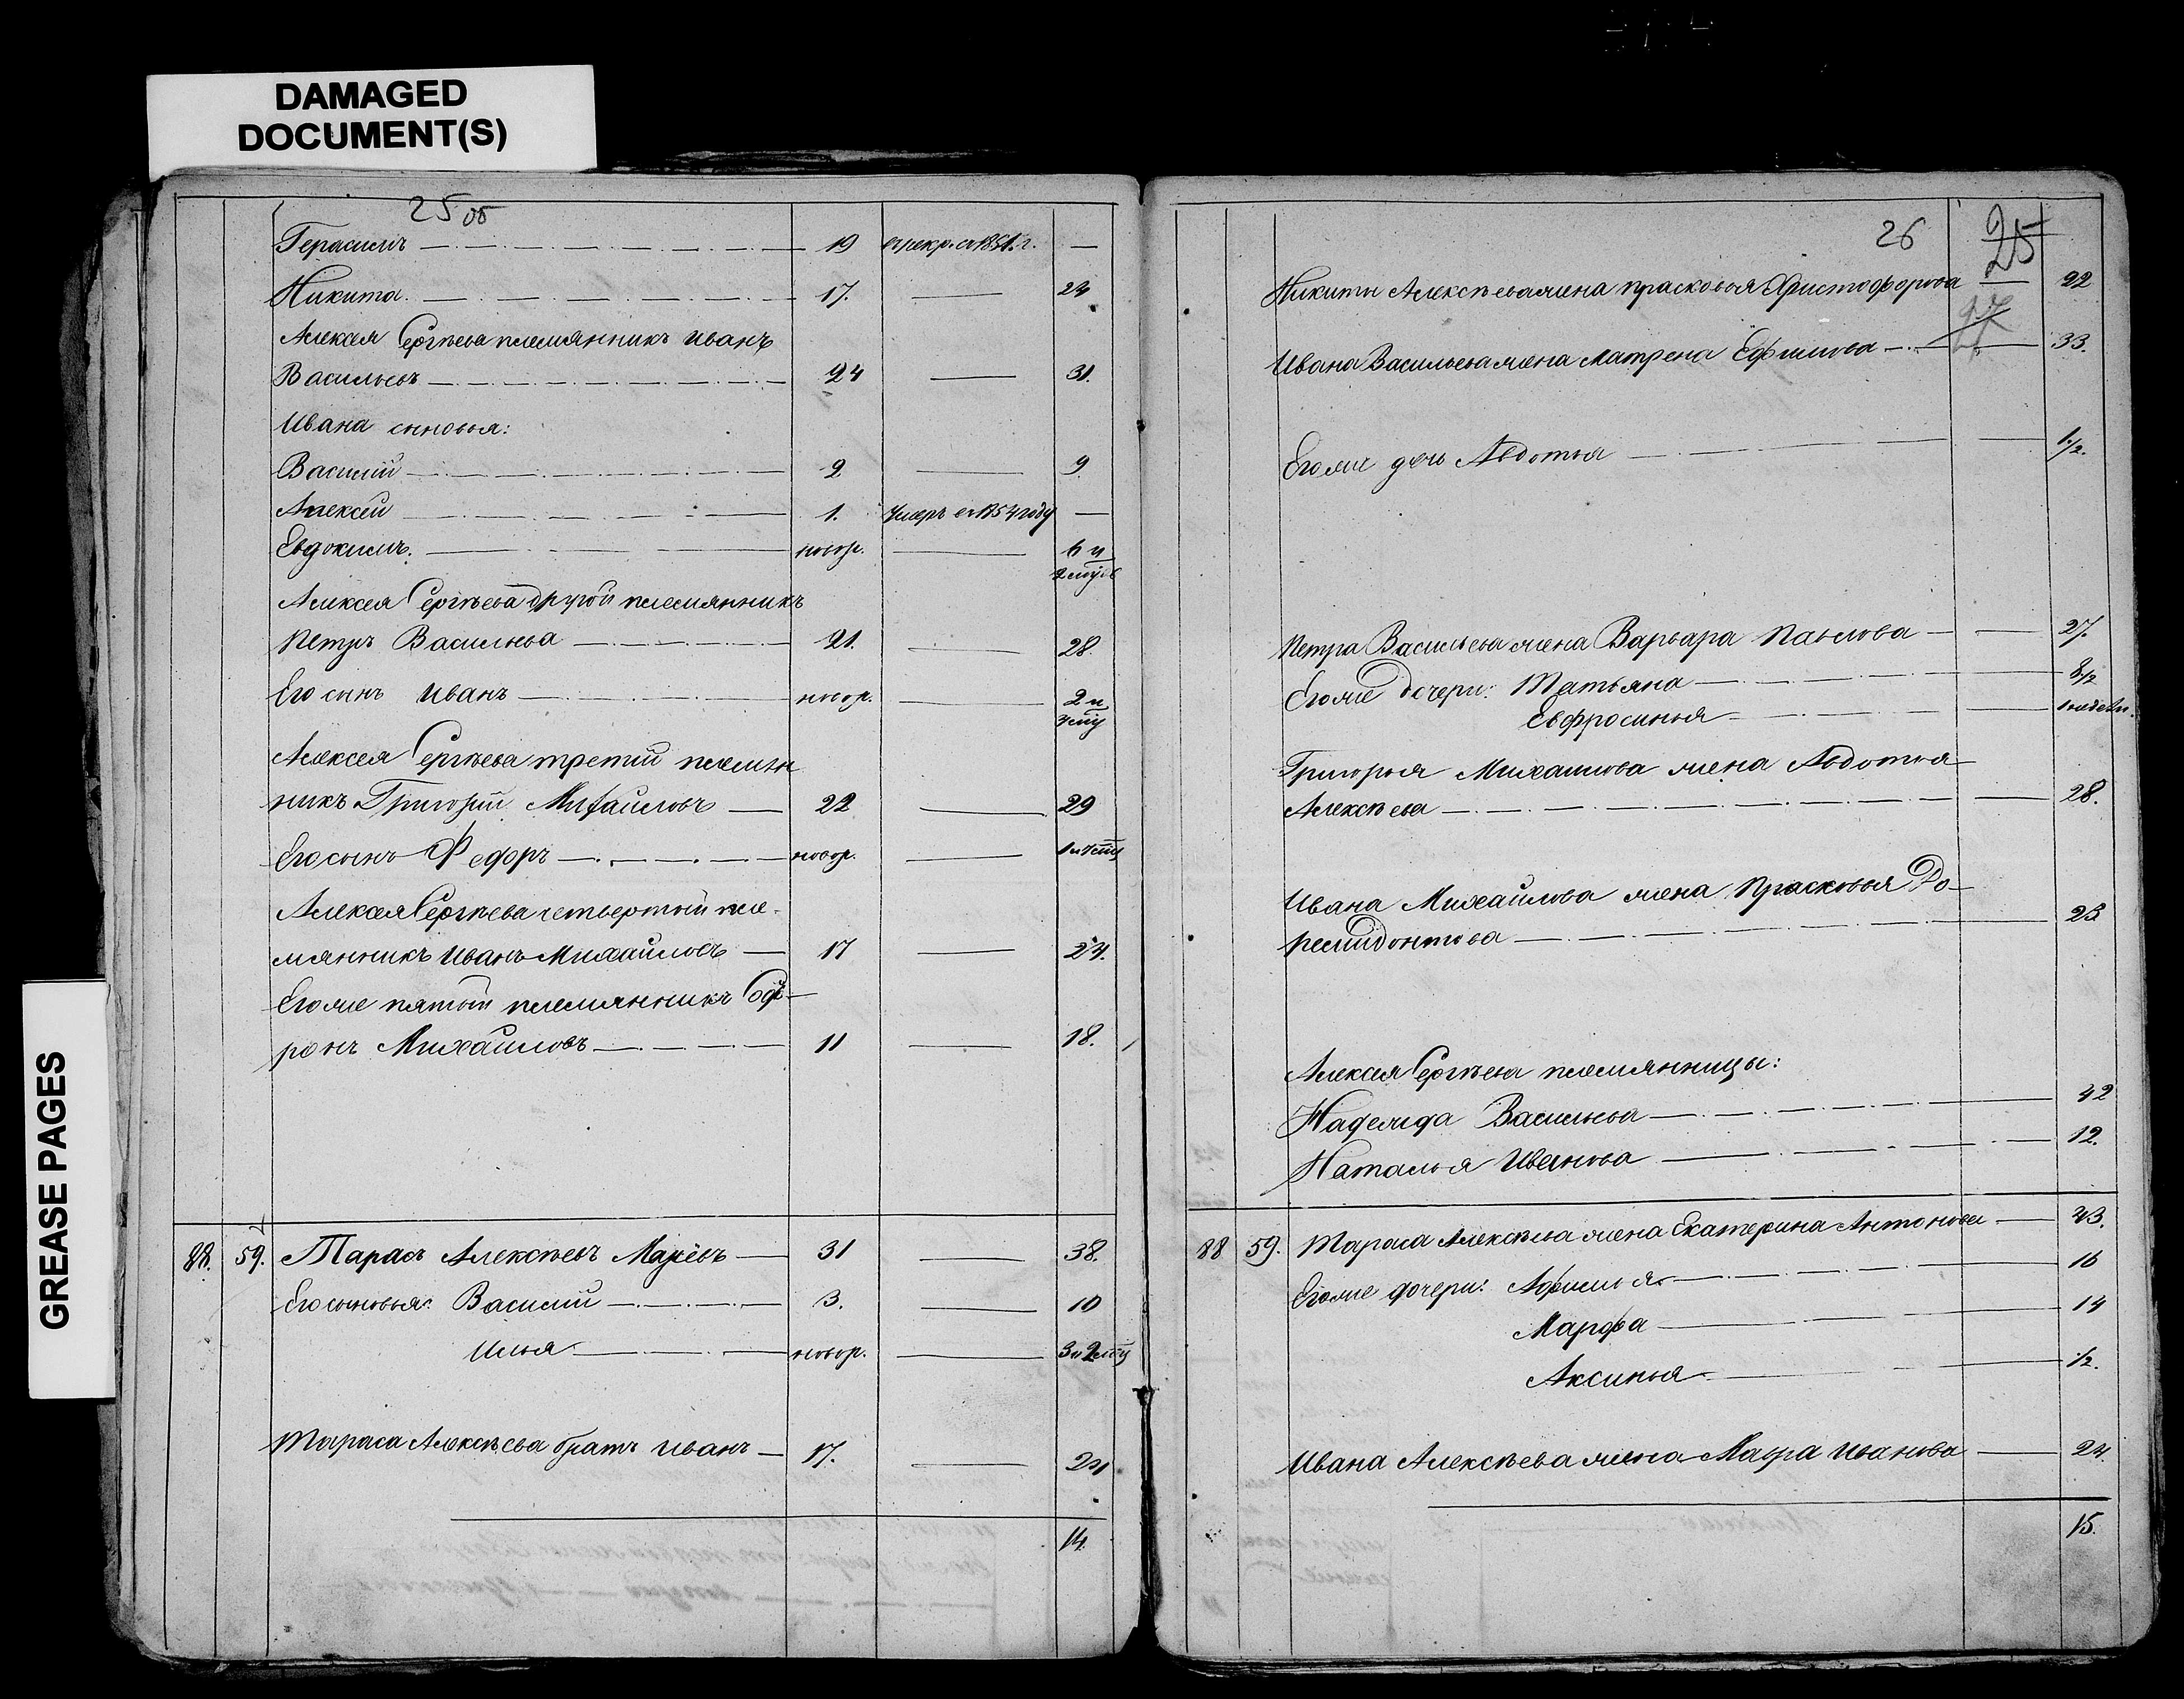 DAMAGED
DOCUMENT(S)
GREASE PAGES
25 об
Герасимъ 19 въ рекр. съ 1851. г. —
Никита. 17. — 24
Алексея Сергѣева племянникъ Иванъ
Васильевъ 24 — 31.
Ивана сыновья:
Василій 2 — 9.
Алексей 1. Умеръ въ 1854 году —
Евдокимъ. новор. — 6 и
Алексея Сергѣева другой племянникъ
Петръ Васильева 21. — 28.
Его сынъ Иванъ новор. — 2 и
Алексея Сергѣева третій племян
никъ Григорій Михайловъ 22 — 29
Его сынъ Федоръ новор. —
Алексея Сергѣева четвертый пле-
мянникъ Иванъ Михайловъ 17 — 24.
Его же пятый племянникъ Соф-
ронъ Михайловъ 11 — 18.
88. 59. Тарасъ Алексѣевъ 31 — 38.
Его сыновья: Василій 3. — 10
Илья новор. —
Тараса Алексѣева братъ Иванъ 17. — 24
14.
26 25
Никиты Алексѣева жена Прасковья Христофорова — 22
Ивана Васильева жена Матрена Ефимова — 33.
Его же дочь Авдотья — 1/2.
Петра Васильева жена Варвара Павлова — 27.
Его же дочери: Татьяна —
Евфросинья — 1 недели.
Григорья Михайлова жена Авдотья
Алексѣева — 28.
Ивана Михайлова жена Прасковья До-
ремидонтова — 23.
Алексея Сергѣева племянницы:
Надежда Васильева — 42
Наталья Иванова — 12.
88 59. Тараса Алексѣева жена Екатерина Антонова — 43.
Его же дочери: Афимья — 16
Марфа — 14
Аксинья — 1/2.
Ивана Алексѣева жена Мавра Иванова — 24.
15.